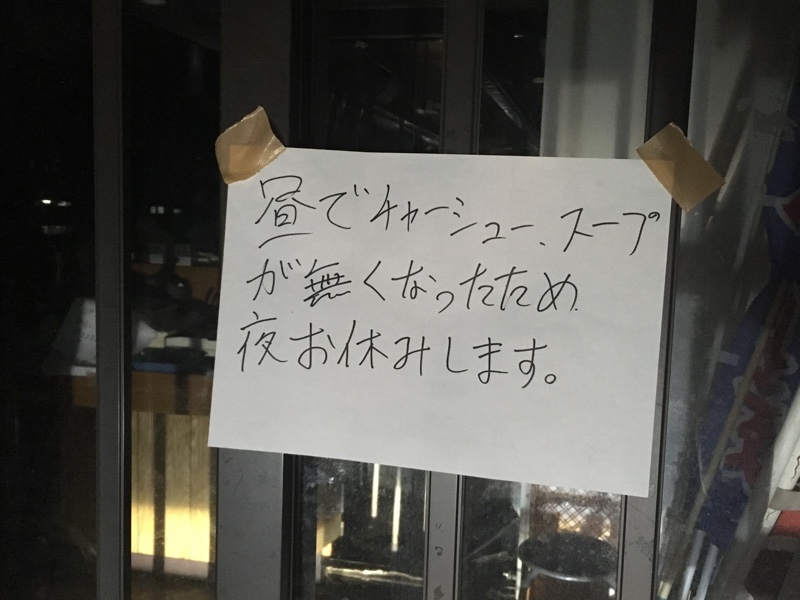 昼でチャーシュー、スープ
が無くなったため
夜お休みします。